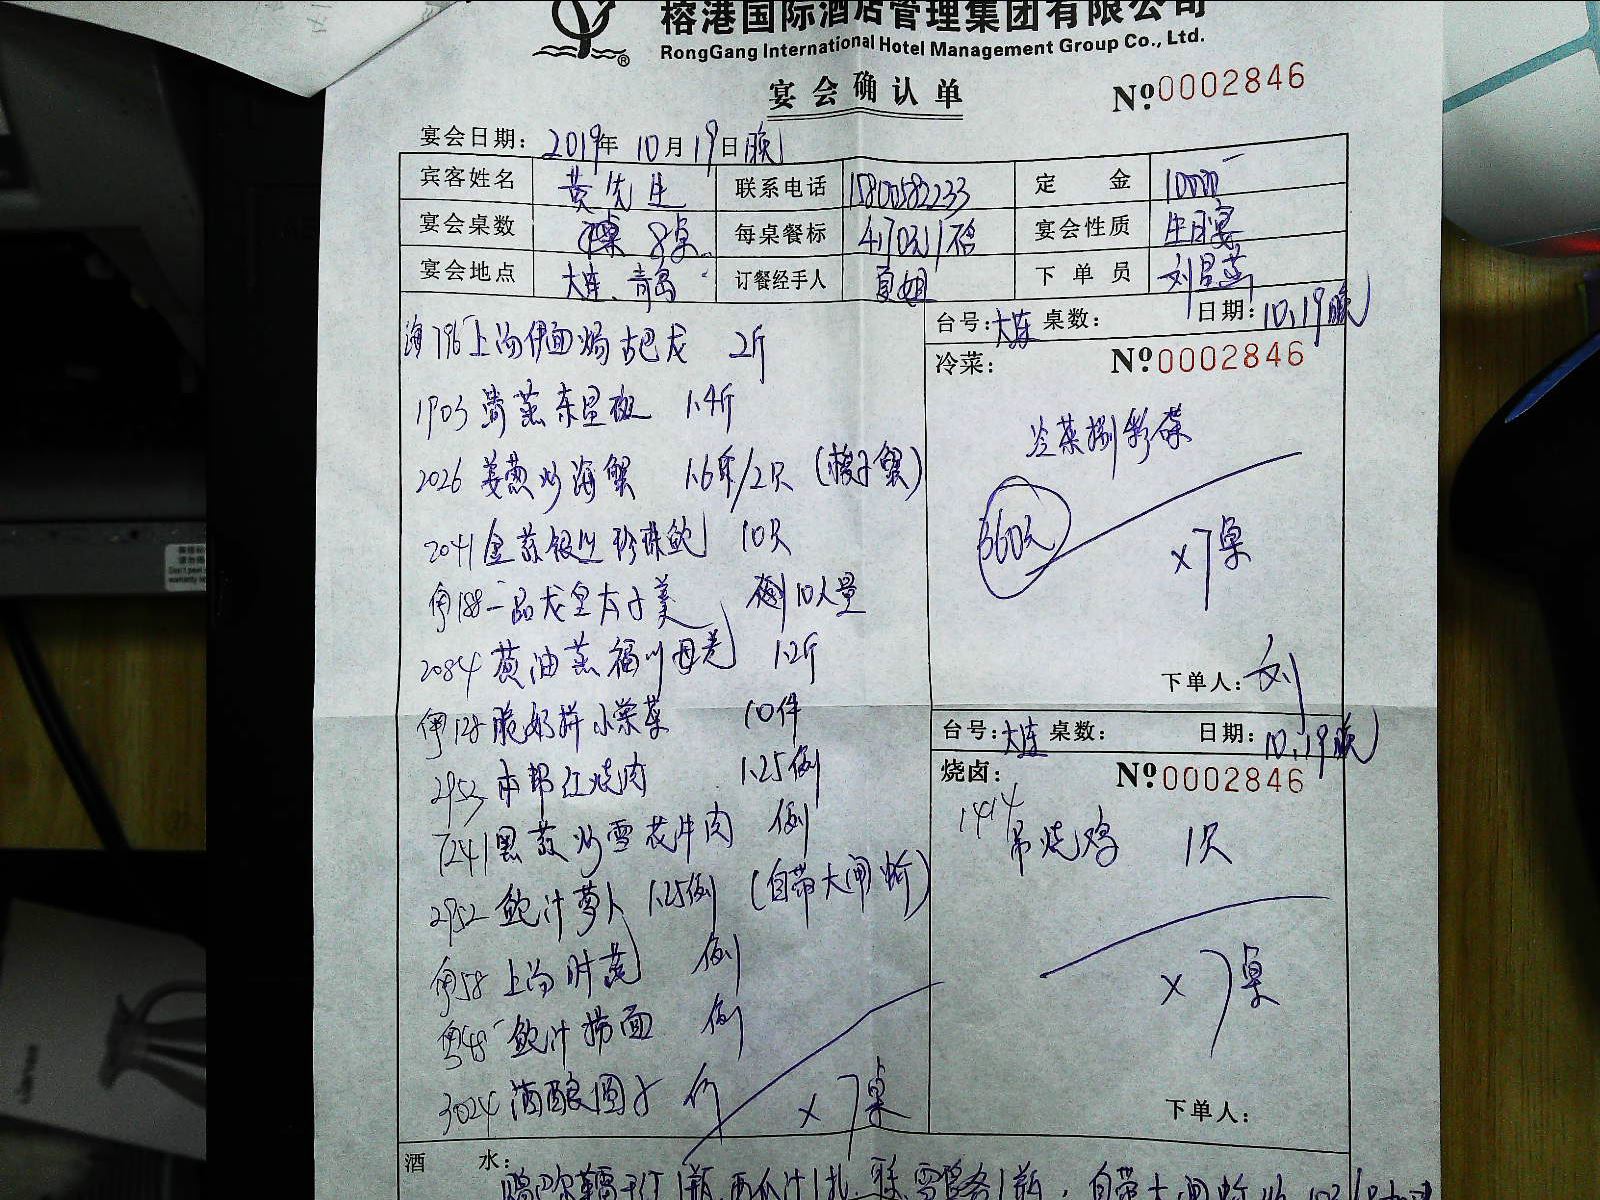 榕港国际酒店管理集团有限公司
RongGang International Hotel Management Group Co., Ltd.
宴会确认单
Nº 0002846
宴会日期: 2019年 10月 19日晚
宾客姓名 黄先生 联系电话 定金
宴会桌数 8桌 每桌餐标 宴会性质 生日宴
宴会地点 大连、青岛 订餐经手人 夏姐 下单员
台号: 大连 桌数: 日期: 10.19晚
冷菜: Nº 0002846
上汤伊面焗古巴龙 2斤
1903 清蒸东星斑 1.4斤
冷菜捌彩碟
2026 姜葱炒海蟹 1.6斤/2只 (梭子蟹)
360元
×7桌
2041 金蒜银丝珍珠鲍 10只
粤188 一品龙皇太子羹 例 10人量
2084 黄油蒸福州 1.2斤
下单人: 刘
粤128 脆奶拼小棠菜 10件
台号: 大连 桌数: 日期: 10.19晚
2953 本帮红烧肉 1.25例
烧卤: Nº 0002846
7241 黑蒜炒雪花牛肉 例
1414 吊烧鸡 1只
2952 鲍汁萝卜 1.25例 (自带大闸蟹)
粤58 上汤时蔬 例
×7桌
粤48 鲍汁捞面 例
3024 酒酿圆子 例
×7桌
下单人:
酒水: